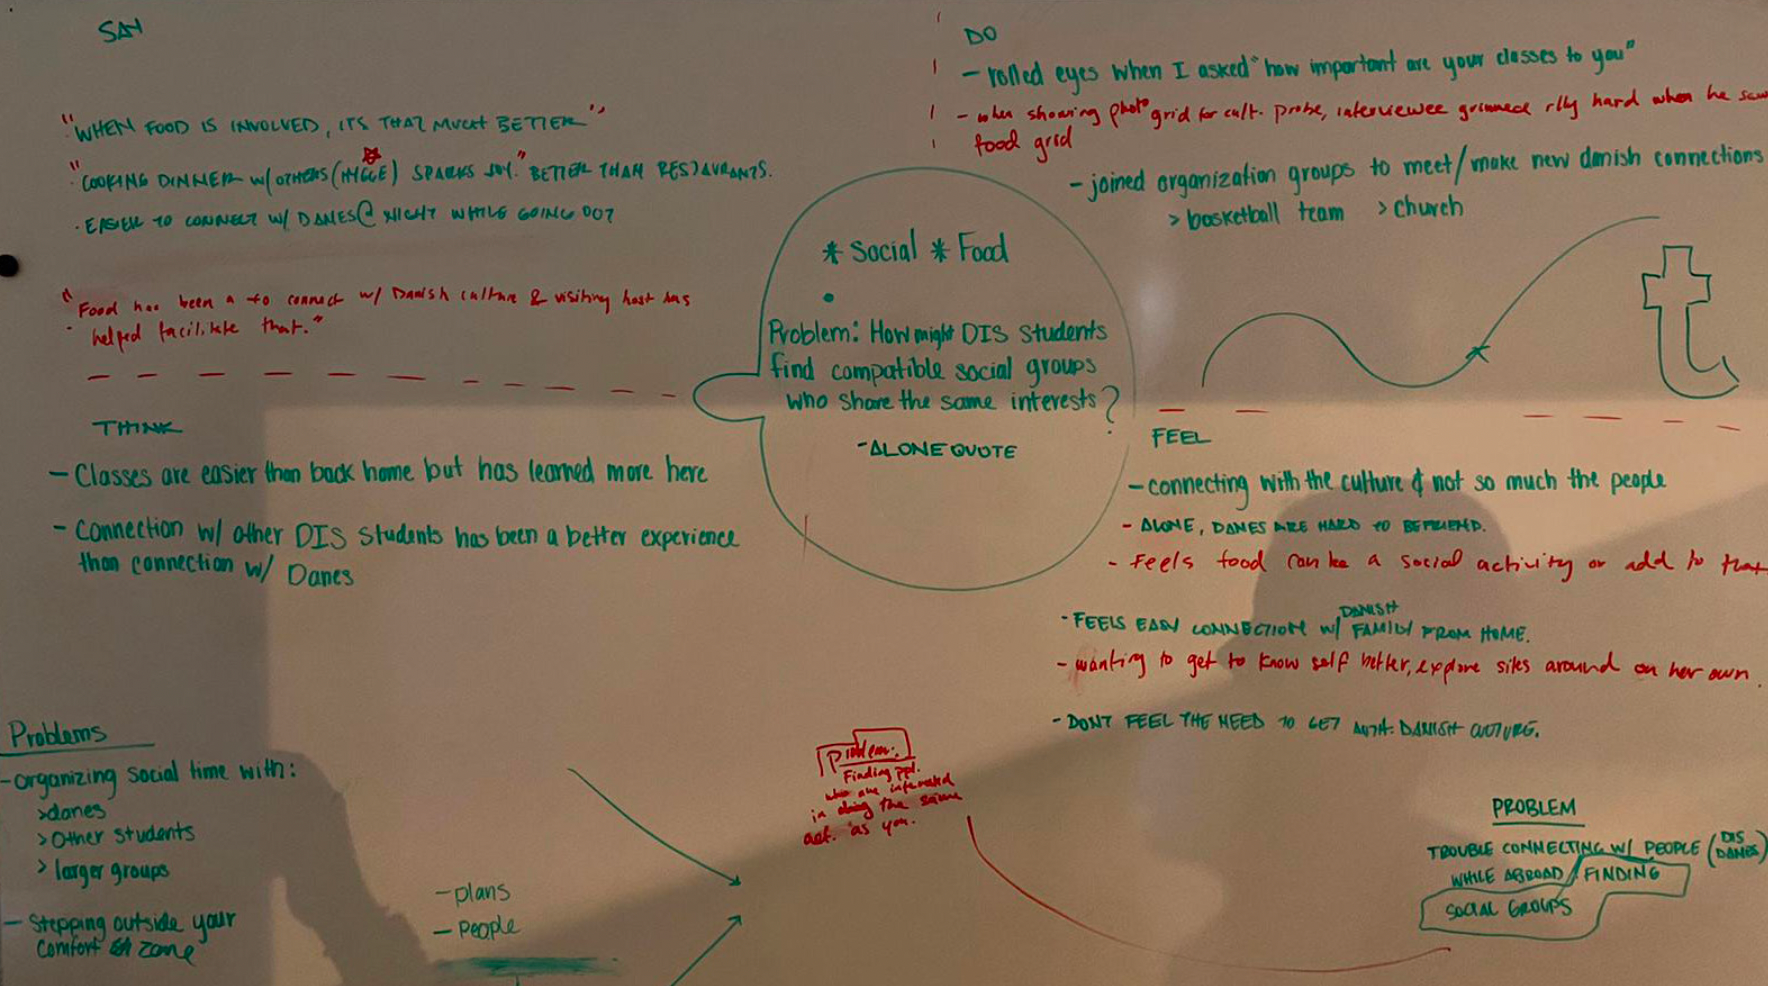 SAY
"WHEN FOOD IS INVOLVED, ITS THAT MUCH BETTER"
"COOKING DINNER w/ OTHERS (HYGGE) SPARKS JOY." BETTER THAN RESTAURANTS.
· EASIER TO CONNECT w/ DANES @ NIGHT WHILE GOING OUT
"Food has been a to connect w/ Danish culture & visiting host has
helped facilitate that."
DO
- rolled eyes when I asked "how important are your classes to you"
- when showing photo grid for cult. probe, interviewee grinned rlly hard when he saw
food grid
- joined organization groups to meet/make new danish connections
> basketball team > church
* Social * Food
Problem: How might DIS students
find compatible social groups
who share the same interests?
- ALONE QUOTE
THINK
- Classes are easier than back home but has learned more here
- Connection w/ other DIS students has been a better experience
than connection w/ Danes
FEEL
- connecting with the culture & not so much the people
- ALONE, DANES ARE HARD TO BEFRIEND.
- Feels food can be a social activity or add to that
- FEELS EASY CONNECTION w/ DANISH FAMILY FROM HOME.
- wanting to get to know self better, explore sites around on her own.
- DONT FEEL THE NEED TO GET DANISH CULTURE.
Problems
- organizing social time with:
> danes
> Other students
> larger groups
- Stepping outside your
comfort zone
- plans
- people
Problem:
Finding ppl.
who are interested
in doing the same
act. as you.
PROBLEM
TROUBLE CONNECTING w/ PEOPLE (DIS
DANES)
WHILE ABROAD / FINDING
SOCIAL GROUPS